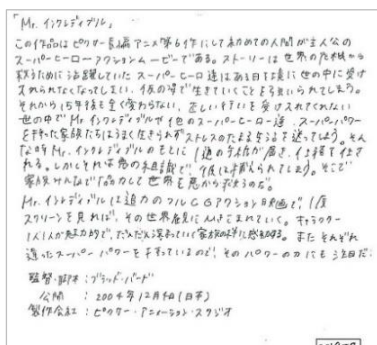 「Mr. インクレディブル」
この作品はピクサー長編アニメ第6作にして初めての人間が主人公の
スーパーヒーローアクションムービーである。ストーリーは世界の危機から
救うために活躍していたスーパーヒーロー達はある日を境に世の中に受け
入れられなくなってしまい、仮の姿で生きていくことを強いられてしまう。
それから15年様も全く変わらない、正しい行いを受け入れてくれない
世の中でMr.インクレディブルや他のスーパーヒーロー達、スーパーパワー
を持った家族たちはうまく生きられずストレスのたまる生活を送ってしまう。そん
な時Mr.インクレディブルのもとに1通の手紙が届き、仕事を任さ
れる。しかしそれは悪の組織で、彼は捕えられてしまう。そこで
家族みんなで協力して世界を悪から救うのだ。
Mr.インクレディブルは迫力のフルCGアクション映画で、1度
スクリーンを見れば、その世界観に引きこまれていく。キャラクター
1人1人が魅力的で、だんだん深まっていく家族の絆に感動する。またそれぞれ
違ったスーパーパワーを持っているので、そのパワーの力にも注目だ!
監督・脚本：ブラッド・バード
公開：2004年12月4日(日本)
製作会社：ピクサー・アニメーション・スタジオ